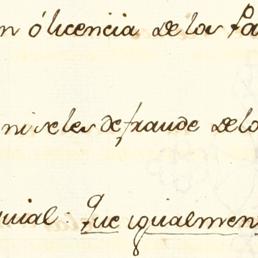 n ó licencia de los Pa
niveles defraude de lo
uial: Que igualmen